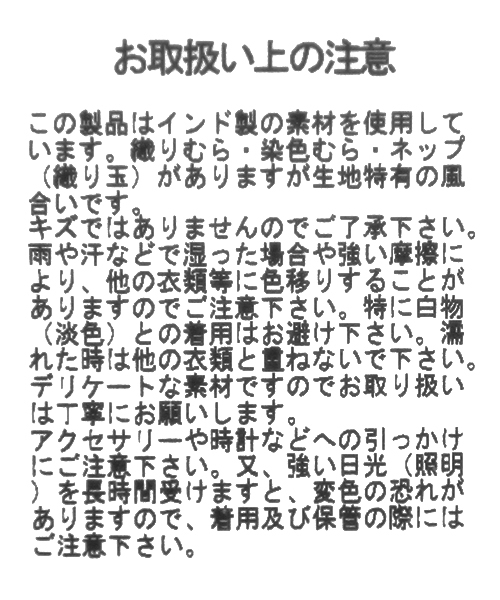 お取扱い上の注意
この製品はインド製の素材を使用して
います。織りむら・染色むら・ネップ
（織り玉）がありますが生地特有の風
合いです。
キズではありませんのでご了承下さい。
雨や汗などで湿った場合や強い摩擦に
より、他の衣類等に色移りすることが
ありますのでご注意下さい。特に白物
（淡色）との着用はお避け下さい。濡
れた時は他の衣類と重ねないで下さい。
デリケートな素材ですのでお取り扱い
は丁寧にお願いします。
アクセサリーや時計などへの引っかけ
にご注意下さい。又、強い日光（照明
）を長時間受けますと、変色の恐れが
ありますので、着用及び保管の際には
ご注意下さい。